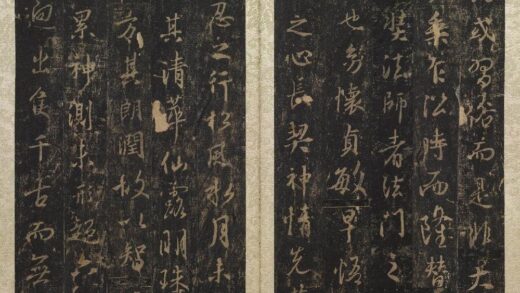 或習俗而是非大
乘乍沿時而隆替
奘法師者法門之
也幼懷貞敏早悟
之心長契神情先
忍之行松風水月未
其清華仙露明珠
方其朗潤故以智
累神測未形超六
迥出隻千古而無